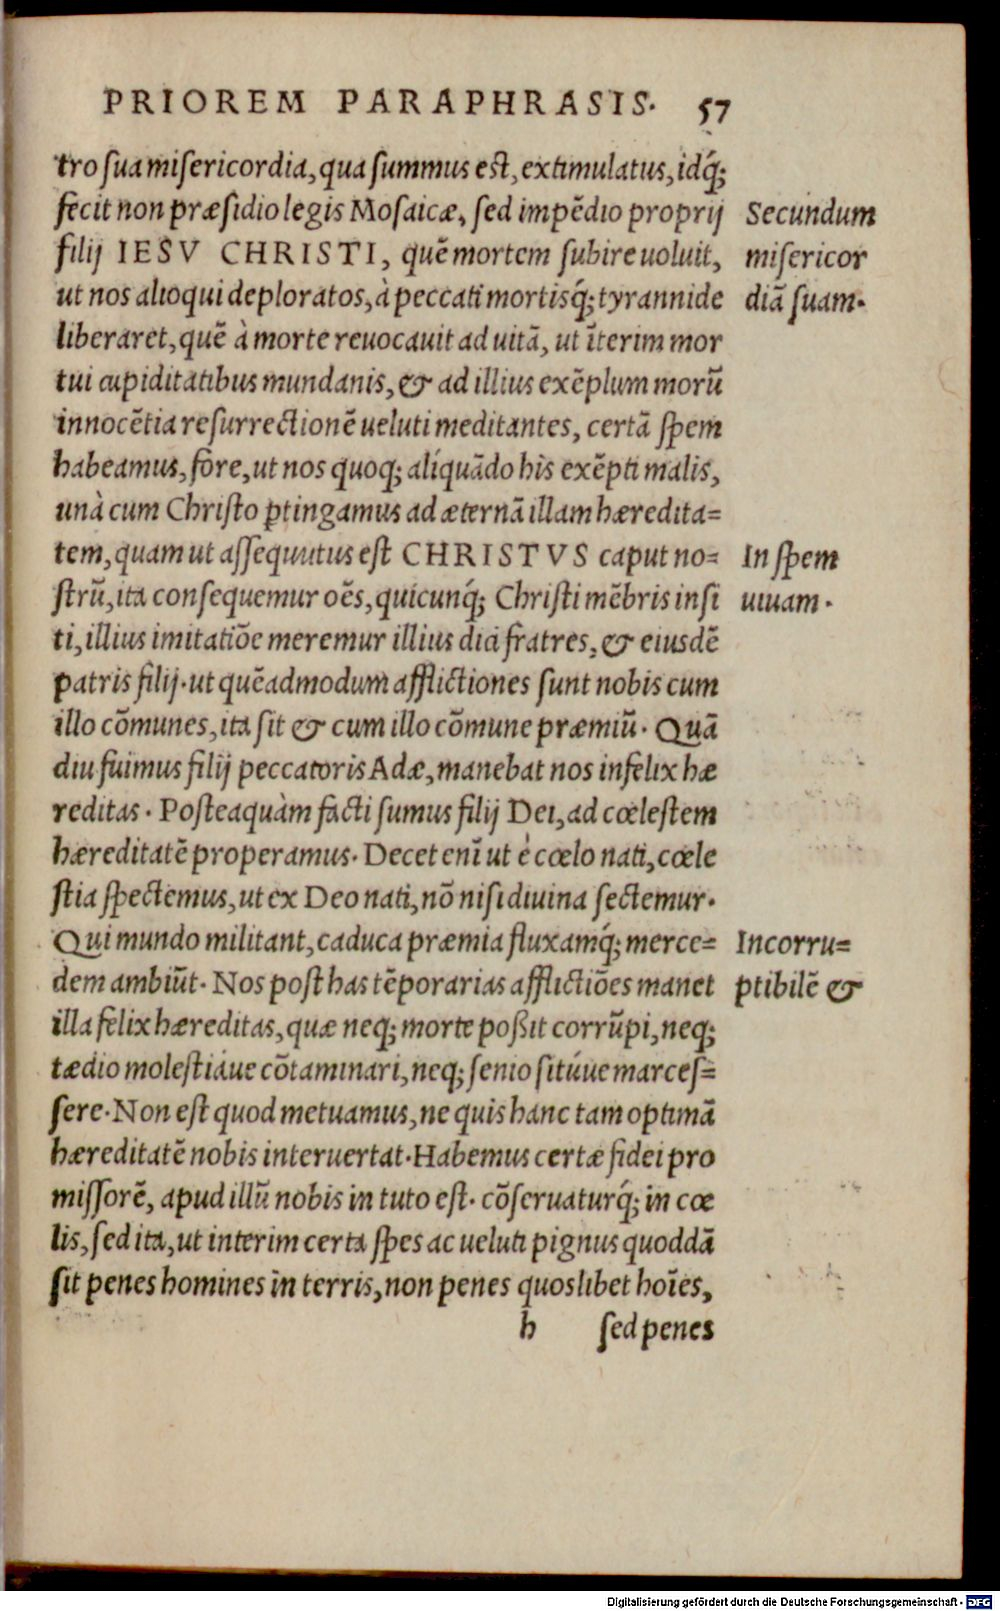 PRIOREM PARAPHRASIS. 57
tro sua misericordia, qua summus est, extimulatus, idq́;
fecit non præsidio legis Mosaicæ, sed impẽdio proprij
Secundum
filij IESV CHRISTI, quẽ mortem subire uoluit,
misericor
ut nos alioqui deploratos, à peccati mortisq́; tyrannide
diã suam.
liberaret, quẽ à morte reuocauit ad uitã, ut ĩterim mor
tui cupiditatibus mundanis, & ad illius exẽplum morũ
innocẽtia resurrectionẽ ueluti meditantes, certã spem
habeamus, fore, ut nos quoq; aliquãdo his exẽpti malis,
unà cum Christo ꝑtingamus ad æternã illam hæredita=
tem, quam ut assequutus est CHRISTVS caput no=
In spem
strũ, ita consequemur oẽs, quicunq́; Christi mẽbris insi
uiuam.
ti, illius imitatiõe meremur illius dici fratres, & eiusdẽ
patris filij. ut quẽadmodum afflictiones sunt nobis cum
illo cõmunes, ita sit & cum illo cõmune præmiũ. Quã
diu fuimus filij peccatoris Adæ, manebat nos infelix hæ
reditas. Posteaquàm facti sumus filij Dei, ad cœlestem
hæreditatẽ properamus. Decet enĩ ut è cœlo nati, cœle
stia spectemus, ut ex Deo nati, nõ nisi diuina sectemur.
Qui mundo militant, caduca præmia fluxamq́; merce=
Incorru=
dem ambiũt. Nos post has tẽporarias afflictiões manet
ptibilẽ &
illa felix hæreditas, quæ neq; morte poßit corrũpi, neq;
tædio molestiáue cõtaminari, neq; senio sitúue marces=
sere. Non est quod metuamus, ne quis hanc tam optimã
hæreditatẽ nobis interuertat. Habemus certæ fidei pro
missorẽ, apud illũ nobis in tuto est. cõseruaturq́; in cœ
lis, sed ita, ut interim certa spes ac ueluti pignus quoddã
sit penes homines in terris, non penes quoslibet hoĩes,
h sed penes
Digitalisierung gefördert durch die Deutsche Forschungsgemeinschaft - DFG